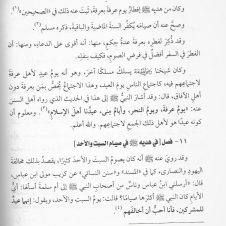 وكان من هديه ﷺ إفطارُ يوم عرفةَ بعرفةَ، ثبت عنه ذلك في «الصحيحين»(١).
وصح عنه أن صيامه يُكفِّر السنة الماضية والباقية، ذكره مسلم(٢).
وقد ذُكر لفطره بعرفة عدةُ حِكَم، منها: أنه أقوى على الدعاء، ومنها: أن
الفطر في السفر أفضلُ في فرض الصوم، فكيف بنفله.
وكان شيخنا يسلك مسلكًا آخر، وهو أنه يومُ عيدٍ لأهل عرفة
لاجتماعهم فيه، كاجتماع الناس يوم العيد، وهذا الاجتماع يختص بمن بعرفة دون
أهل الآفاق. قال: وقد أشار النبي ﷺ إلى هذا في الحديث الذي رواه أهل السنن
عنه: «يومُ عرفة، ويومُ النحر، وأيامُ منى، عيدُنا أهلَ الإسلام»(٣). ومعلوم أن
كونه عيدًا هو لأهل ذلك الجمع لاجتماعهم. والله أعلم.
١١ - فصل [في هديه ﷺ في صيام السبت والأحد]
وقد روي عنه ﷺ أنه كان يصوم السبت والأحد كثيرًا، يقصدُ بذلك مخالفة
اليهود والنصارى، كما في «المسند» و«سنن النسائي» عن كُريب مولى ابن عباس،
قال: «أرسلني ابن عباس وناس من أصحاب النبي ﷺ إلى أم سلمة أسألها: أيُّ
الأيام كان النبي ﷺ أكثرَها صيامًا؟ قالت: يومُ السبت والأحد، ويقول: إنهما عيدٌ
للمشركين، فأنا أُحبُّ أن أخالفهم»(٤)